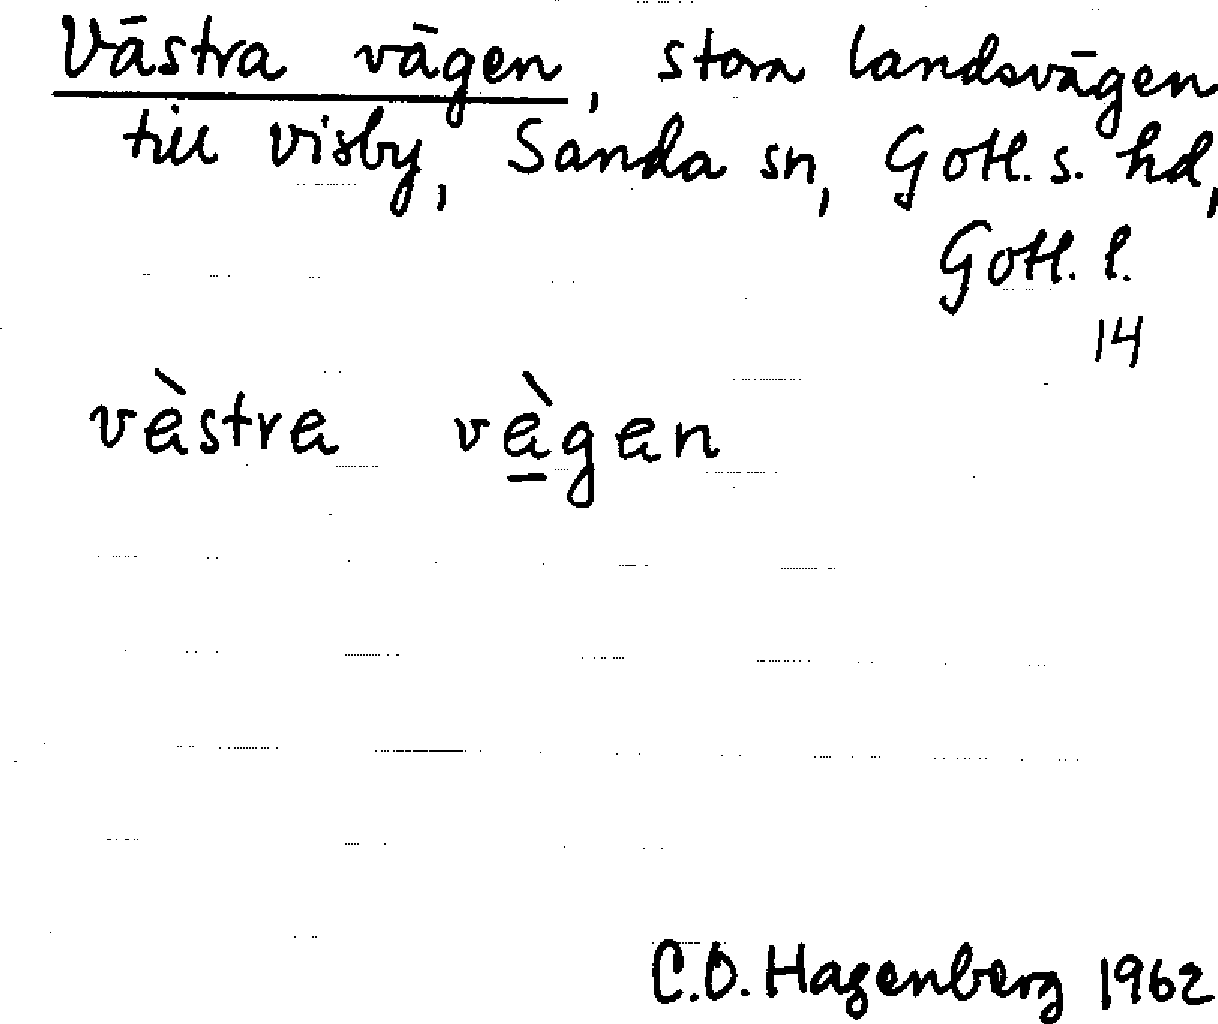 Västra vägen, stora landsvägen
till Visby, Sanda sn, Gotl. s. hd,
Gotl. l.
14
væ̀stra væ̠̀gan
C.O. Hagenberg 1962